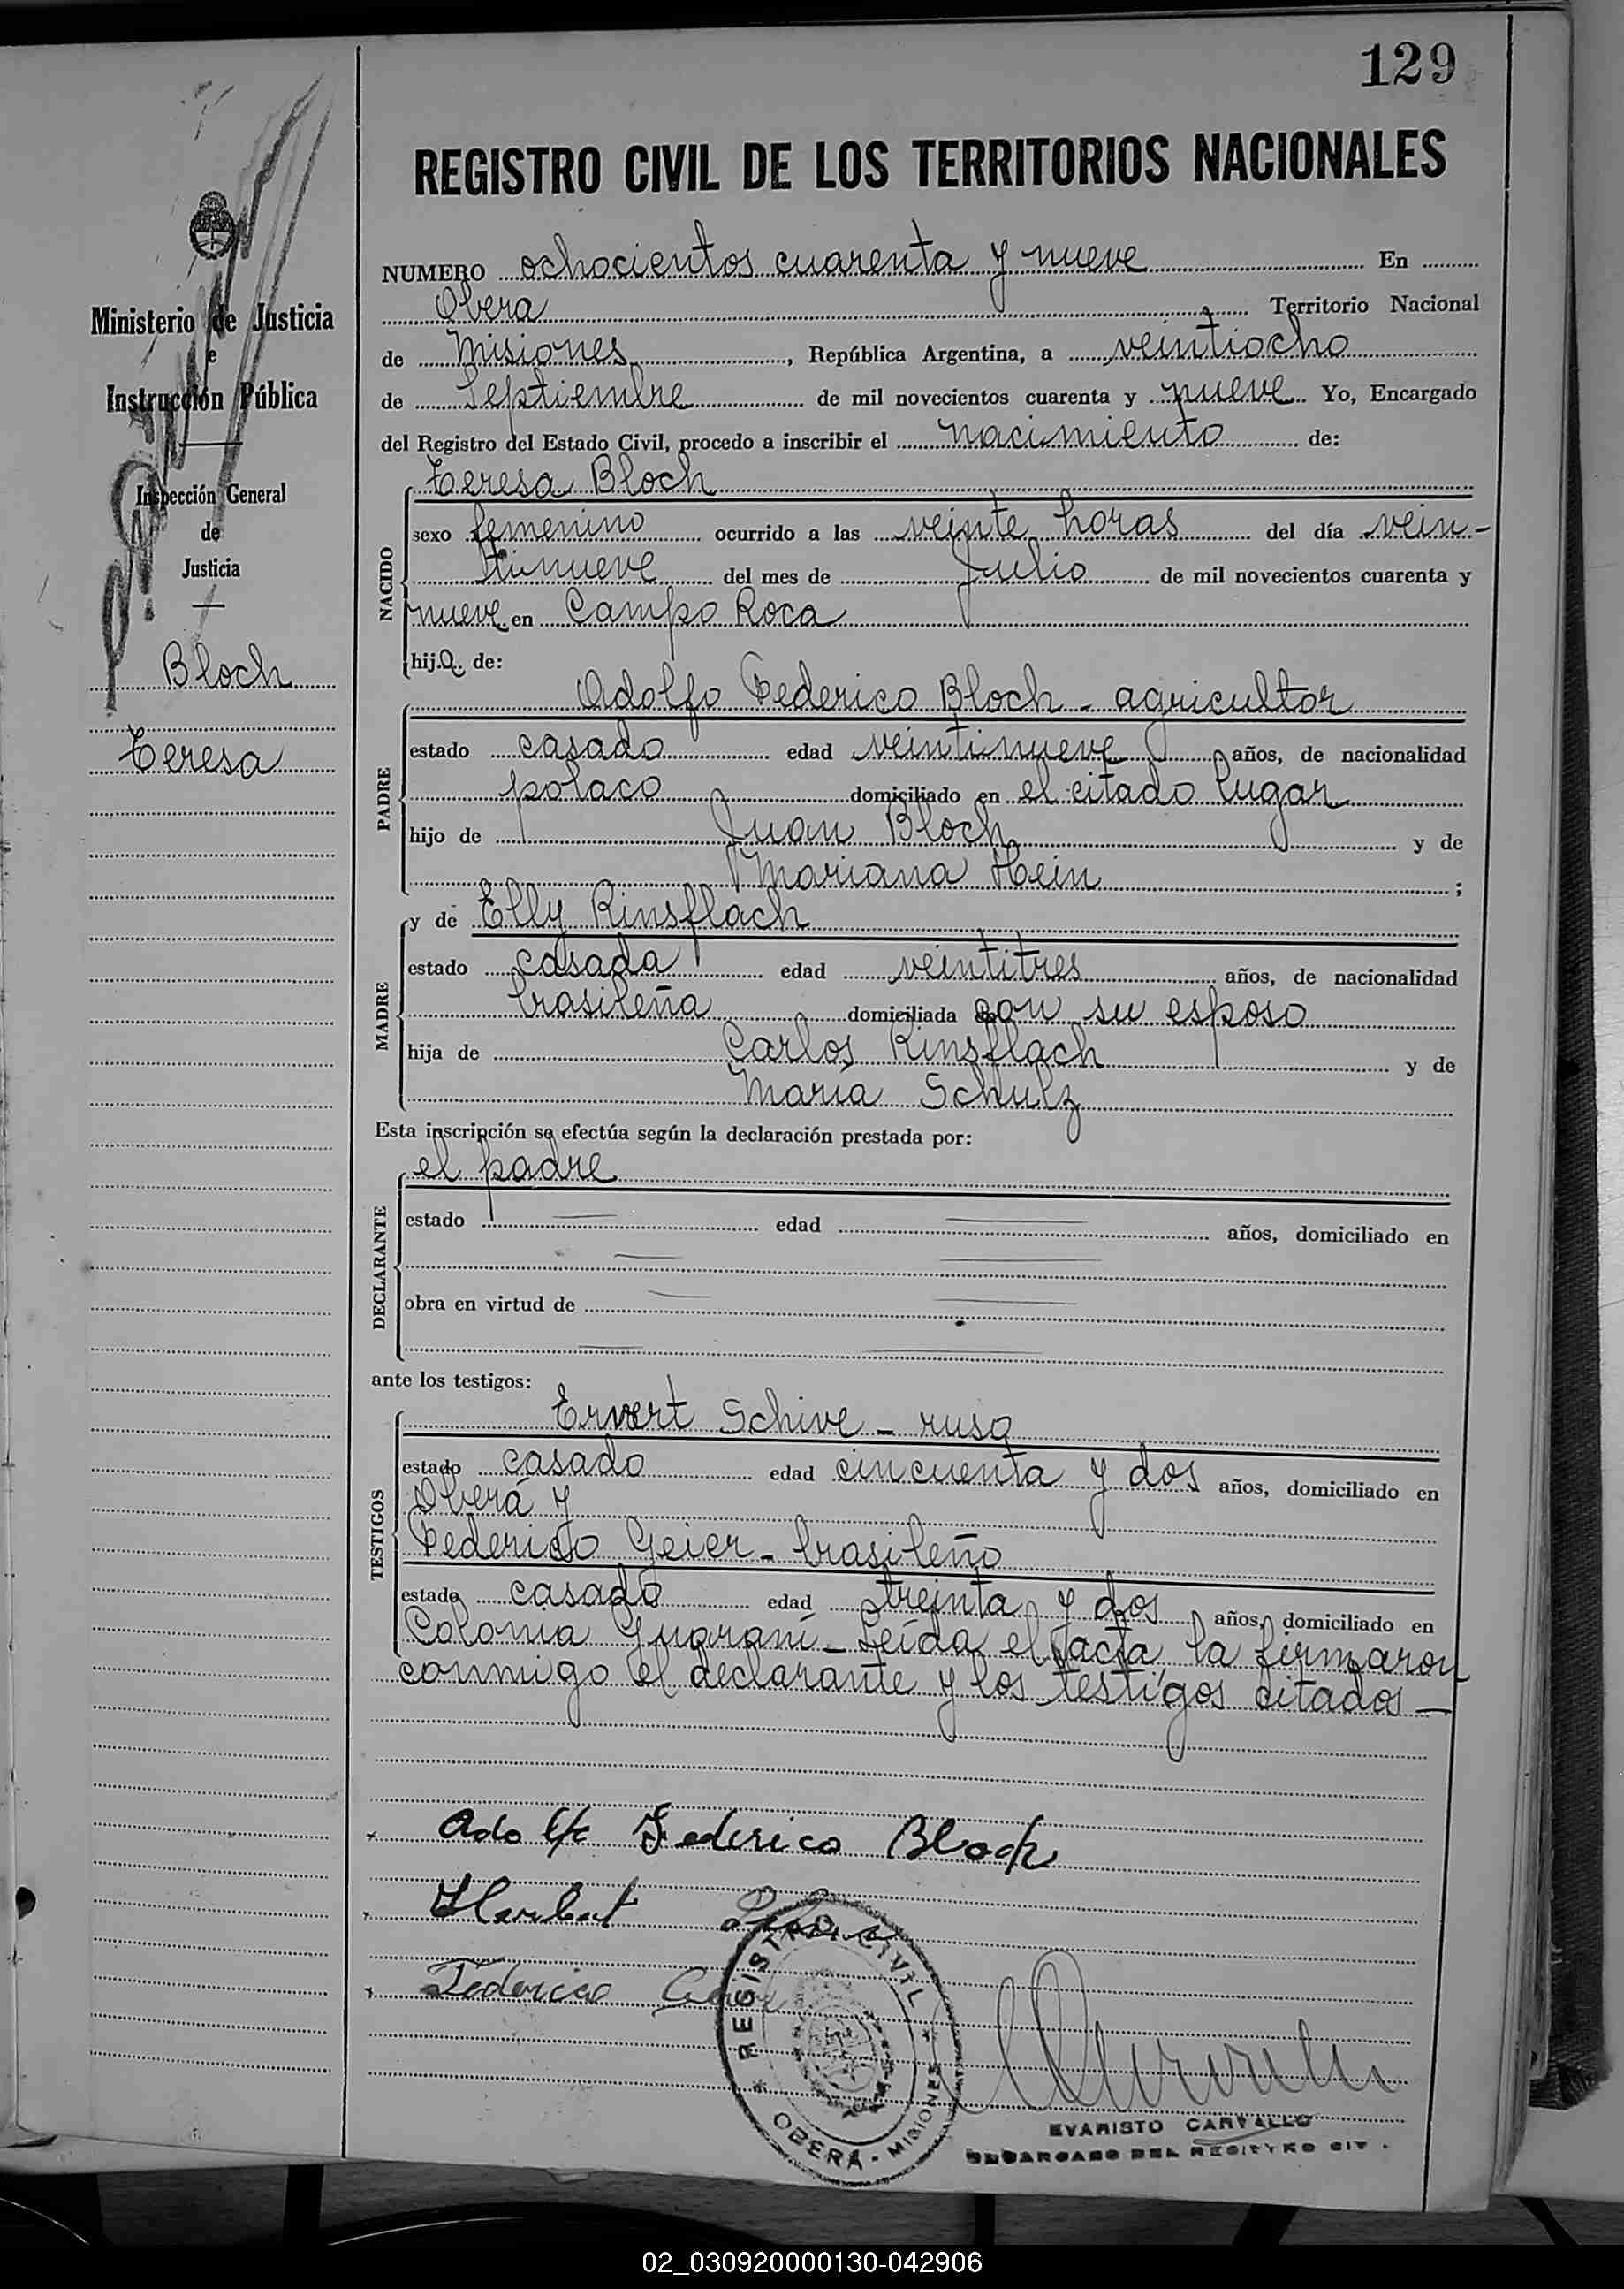 129
REGISTRO CIVIL DE LOS TERRITORIOS NACIONALES
NUMERO ochocientos cuarenta y nueve En
Obera Territorio Nacional
de Misiones, República Argentina, a veintiocho
de Septiembre de mil novecientos cuarenta y nueve Yo, Encargado
del Registro del Estado Civil, procedo a inscribir el nacimiento de:
Ministerio de Justicia
e
Instrucción Pública
Inspección General
de
Justicia
Bloch
Teresa
NACIDO
Teresa Bloch
sexo femenino ocurrido a las veinte horas del día vein-
tinueve del mes de Julio de mil novecientos cuarenta y
nueve en Campo Roca
hija de:
PADRE
Adolfo Federico Bloch - agricultor
estado casado edad veintinueve años, de nacionalidad
polaco domiciliado en el citado lugar
hijo de Juan Bloch y de
Mariana Hein ;
MADRE
y de Elly Rinsflach
estado casada edad veintitres años, de nacionalidad
brasileña domiciliada con su esposo
hija de Carlos Rinsflach y de
María Schulz
Esta inscripción se efectúa según la declaración prestada por:
DECLARANTE
el padre
estado edad años, domiciliado en
obra en virtud de
ante los testigos:
TESTIGOS
Ervert Schive - ruso
estado casado edad cincuenta y dos años, domiciliado en
Oberá y
Federico Geier - brasileño
estado casado edad treinta y dos años, domiciliado en
Colonia Guaraní - Leída el acta la firmaron
conmigo el declarante y los testigos citados -
Adolfo Federico Bloch
Federico
REGISTRO CIVIL
OBERÁ - MISIONES
EVARISTO CARVALLO
ENCARGADO DEL REGISTRO CIV.
02_030920000130-042906